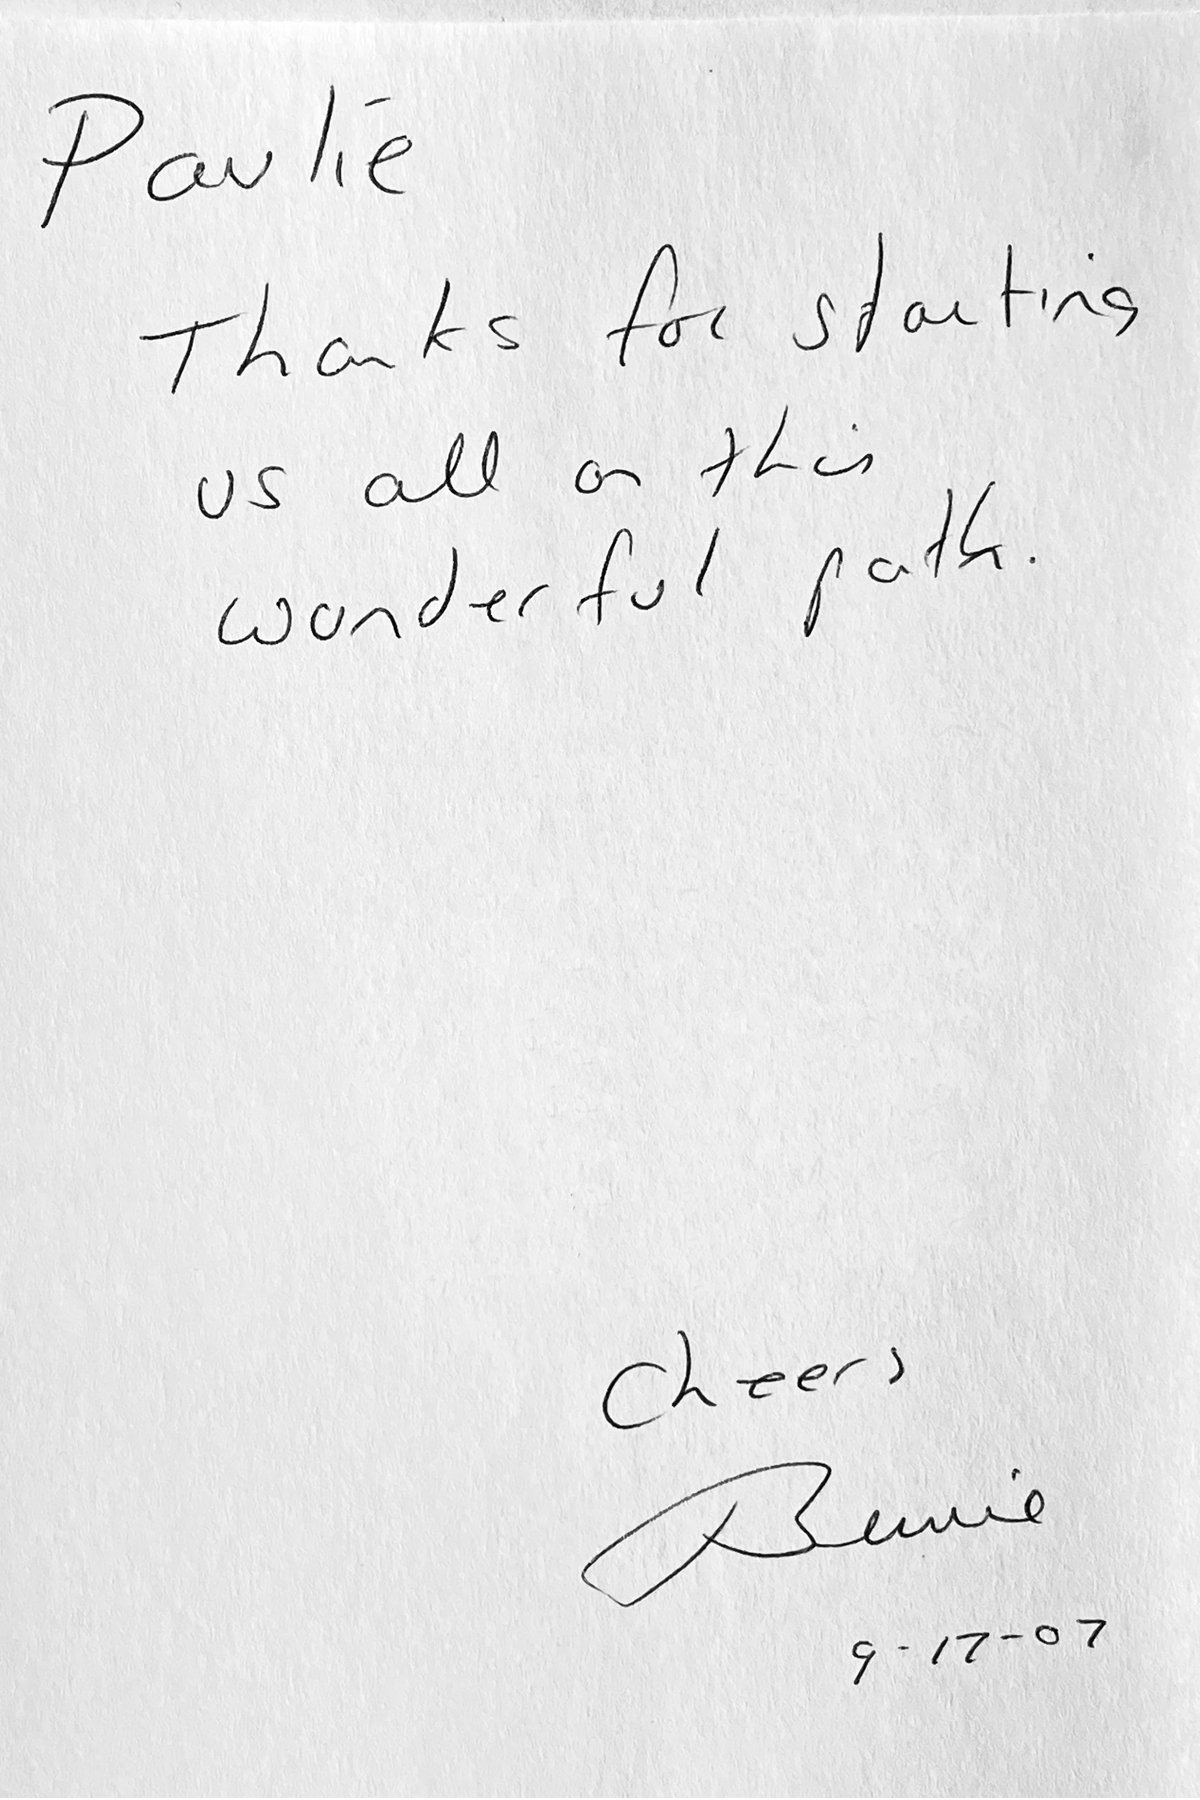 Paulie
Thanks for starting
us all on this
wonderful path.
Cheers
Bernie
9-17-07